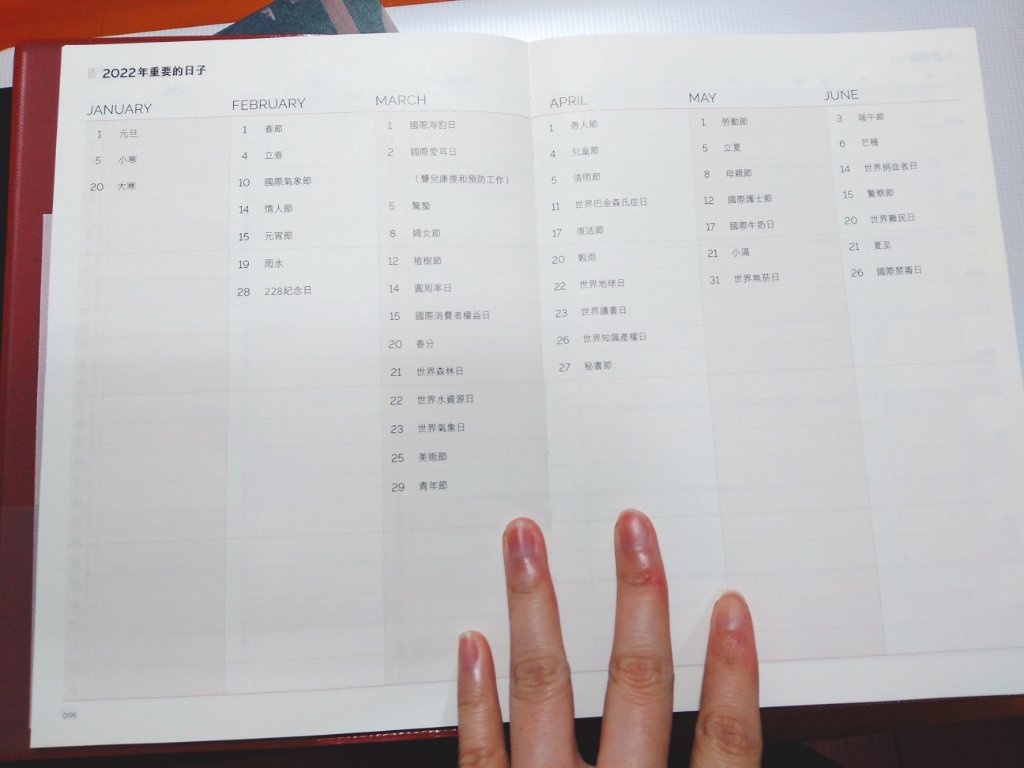 2022年重要的日子
JANUARY
1 元旦
5 小寒
20 大寒
FEBRUARY
1 春節
4 立春
10 國際氣象節
14 情人節
15 元宵節
19 雨水
28 228紀念日
MARCH
1 國際海豹日
2 國際愛耳日
（聾兒康復和預防工作）
5 驚蟄
8 婦女節
12 植樹節
14 圓周率日
15 國際消費者權益日
20 春分
21 世界森林日
22 世界水資源日
23 世界氣象日
25 美術節
29 青年節
APRIL
1 愚人節
4 兒童節
5 清明節
11 世界巴金森氏症日
17 復活節
20 穀雨
22 世界地球日
23 世界讀書日
26 世界知識產權日
27 秘書節
MAY
1 勞動節
5 立夏
8 母親節
12 國際護士節
17 國際牛奶日
21 小滿
31 世界無菸日
JUNE
3 端午節
6 芒種
14 世界捐血者日
15 警察節
20 世界難民日
21 夏至
26 國際禁毒日
006